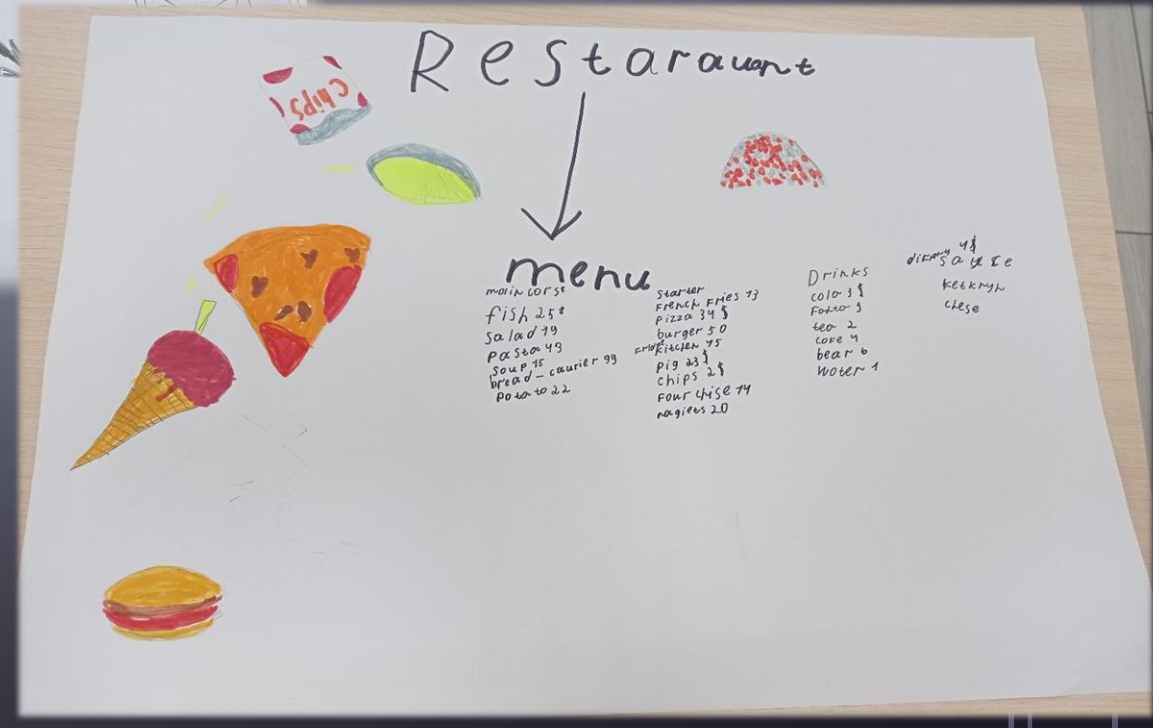 Restarauant
chips
menu
main cors
fish 25$
salad 19
pasta 43
soup 15
bread-caurier 99
potato 22
starter
French Fries 13
pizza 34$
burger 50
Fried kitchen 15
pig 23$
chips 2$
Four chise 14
nagiets 20
Drinks
cola 3$
Fanta 3
tea 2
cofe 4
bear 6
water 1
4$
sauce
chese